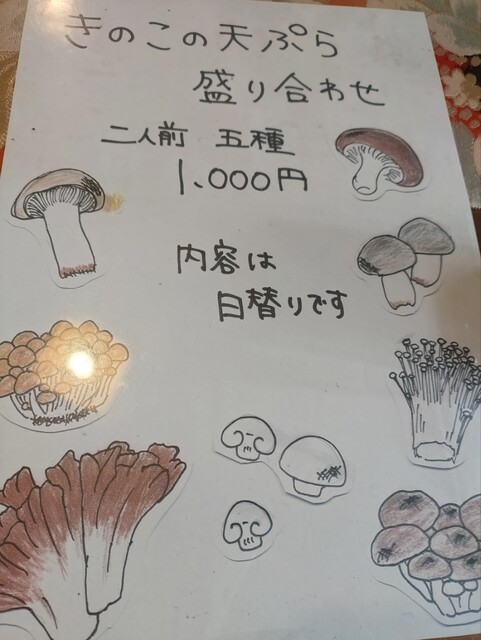 きのこの天ぷら
盛り合わせ
二人前 五種
1,000円
内容は
日替りです